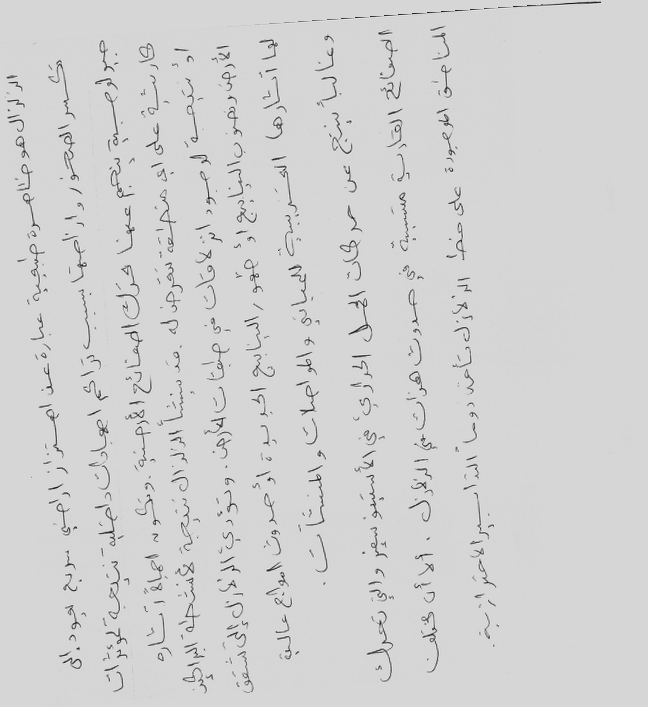 الزلزال هو ظاهرة طبيعية عبارة عن اهتزاز أرضي سريع يعود إلى
تكسر الصخور وإزاحتها بسبب تراكم إجهادات داخلية نتيجة لمؤثرات
جيولوجية ينجم عنها تحرك الصفائح الأرضية. وتكون أحياناً آثاره
كارثية على أي منطقة تتعرض له. قد ينشأ الزلزال نتيجة لأنشطة البراكين
أو نتيجة لوجود انزلاقات في طبقات الأرض. وتؤدي الزلازل إلى تشقق
الأرض ونضوب الينابيع أو ظهور الينابيع الجديدة أو حدوث أمواج عالية
لها آثارها التخريبية للمباني والمواصلات والمنشآت.
وغالباً ينتج عن حركات الحمل الحراري في الأسينوسفير والتي تحرك
الصفائح القارية متسببة في حدوث هزات هي الزلازل. إلا أن مختلف
المناطق الموجودة على خط الزلازل تأخذ دوماً التدابير الاحترازية.